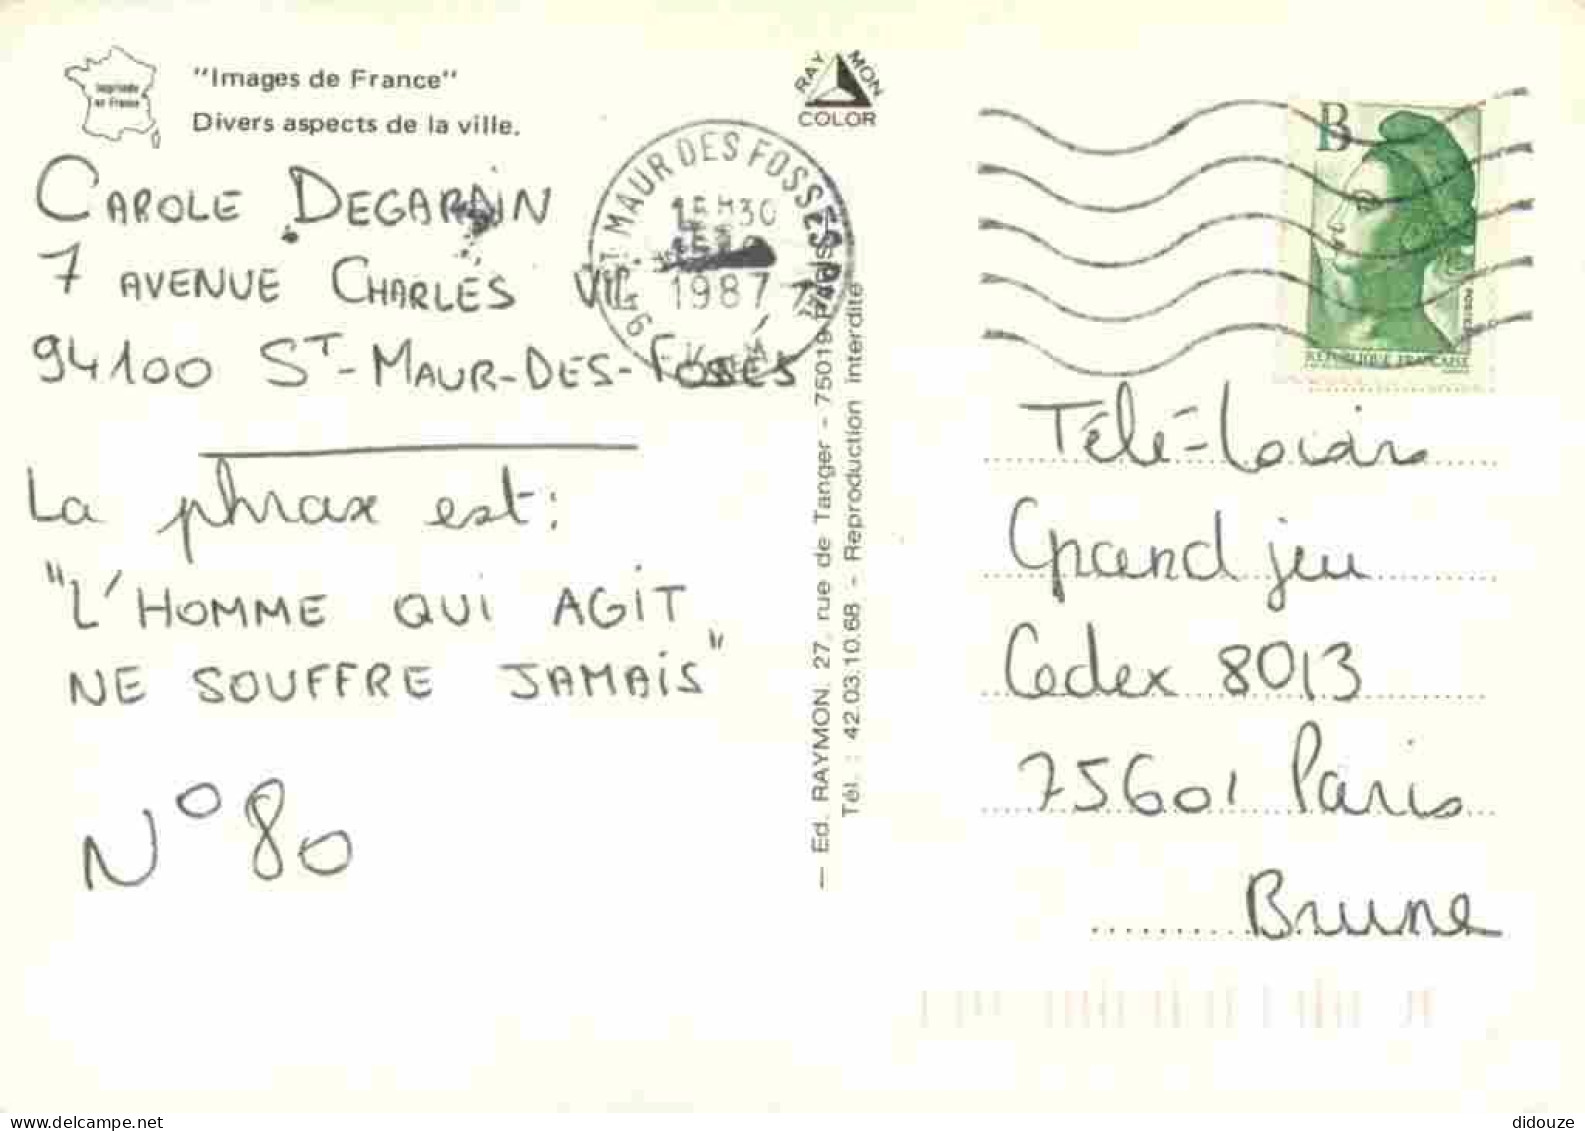 Imprimée
en France
"Images de France"
Divers aspects de la ville.
RAYMON
COLOR
CAROLE DEGARAIN
7 AVENUE CHARLES VII
94100 ST-MAUR-DES-FOSSÉS
ST MAUR DES FOSSES PAL
30
1987
94
La phrase est:
"L'HOMME QUI AGIT
NE SOUFFRE JAMAIS"
N° 80
— Ed. RAYMON. 27, rue de Tanger - 75019 PARIS
Tél. : 42.03.10.68 - Reproduction interdite
B
REPUBLIQUE FRANÇAISE
POSTES
Télé-Loisirs
Grand jeu
Cedex 8013
75601 Paris
Brune
didouze